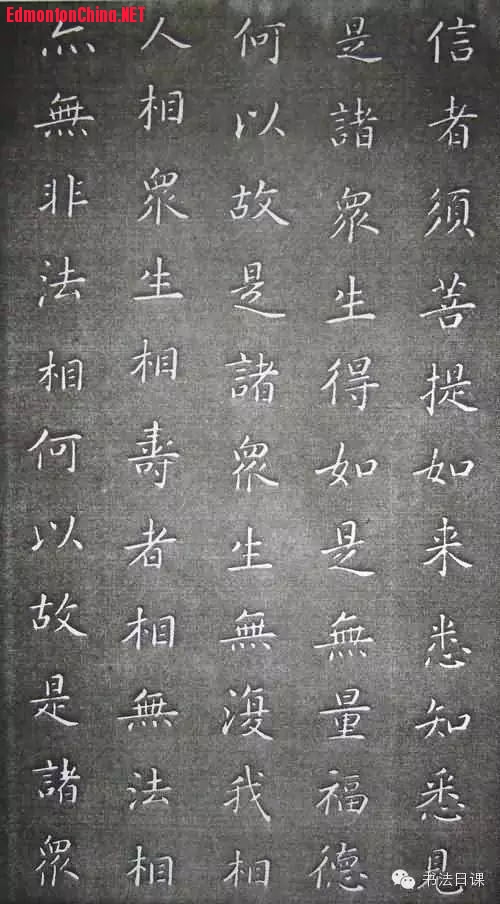 EdmontonChina.NET
信者須菩提如来悉知悉見
是諸眾生得如是無量福德
何以故是諸眾生無復我相
人相眾生相壽者相無法相
亦無非法相何以故是諸眾
书法日课